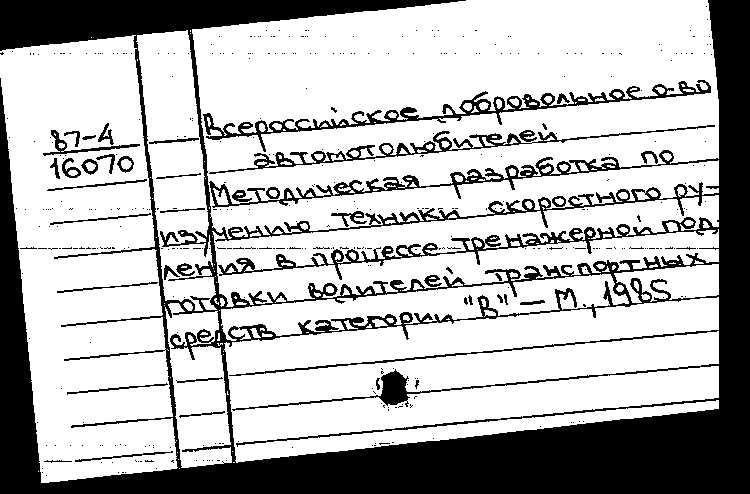 87-4
16070
Всероссийское добровольное о-во
автомотолюбителей.
Методическая разработка по
изучению техники скоростного ру-
ления в процессе тренажерной под-
готовки водителей транспортных
средств категории "В". – М., 1985